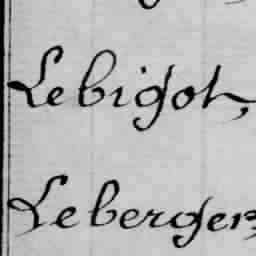 Lebigot,
Leberger,